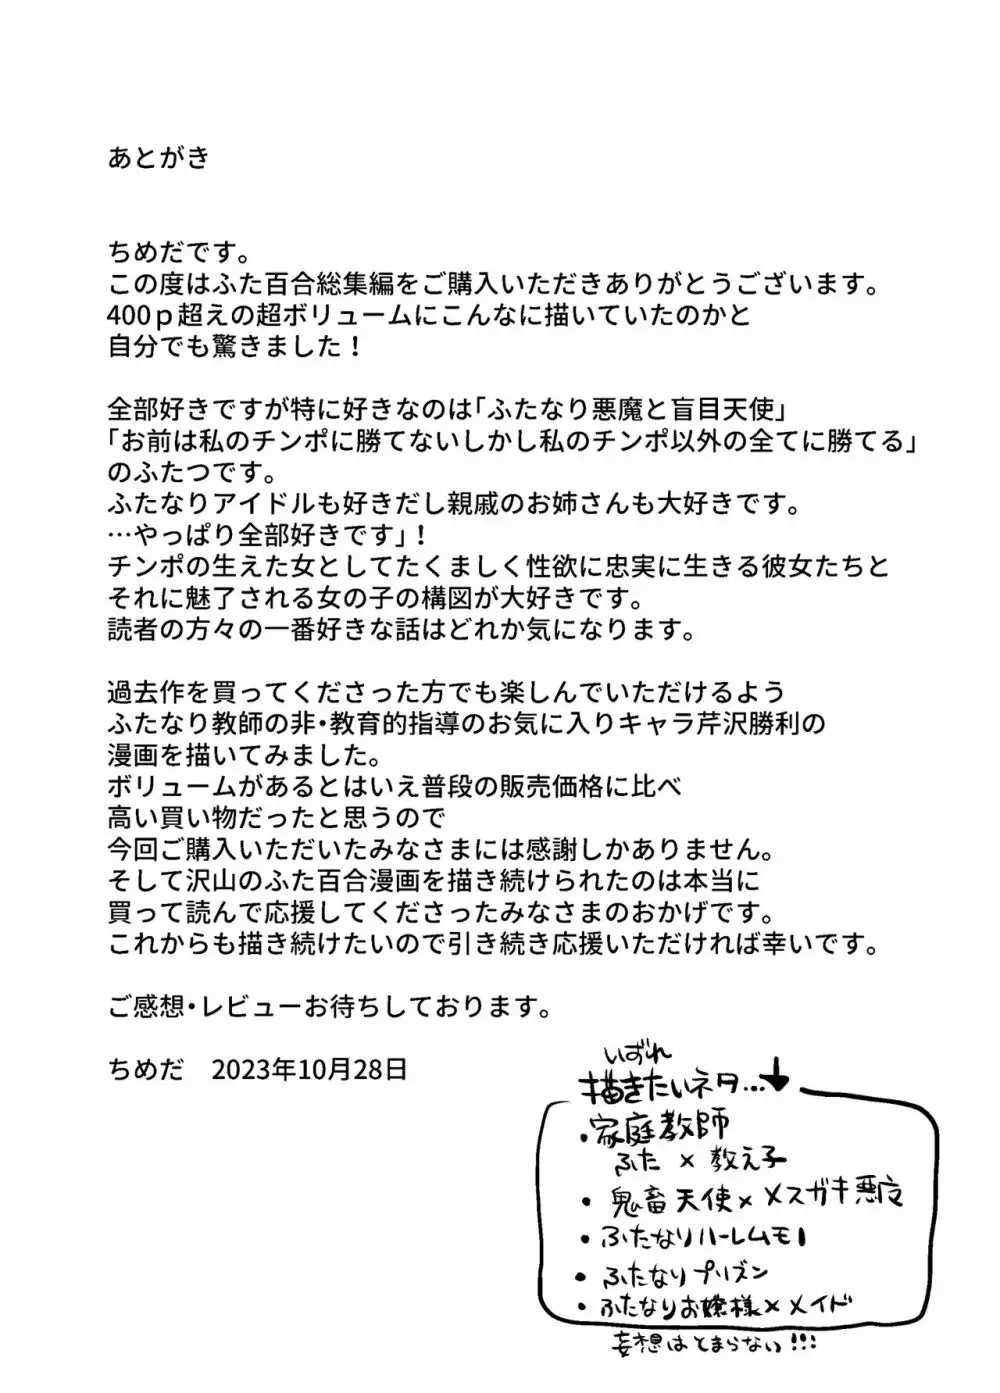 あとがき
ちめだです。
この度はふた百合総集編をご購入いただきありがとうございます。
400ｐ超えの超ボリュームにこんなに描いていたのかと
自分でも驚きました！
全部好きですが特に好きなのは「ふたなり悪魔と盲目天使」
「お前は私のチンポに勝てないしかし私のチンポ以外の全てに勝てる」
のふたつです。
ふたなりアイドルも好きだし親戚のお姉さんも大好きです。
…やっぱり全部好きです」！
チンポの生えた女としてたくましく性欲に忠実に生きる彼女たちと
それに魅了される女の子の構図が大好きです。
読者の方々の一番好きな話はどれか気になります。
過去作を買ってくださった方でも楽しんでいただけるよう
ふたなり教師の非・教育的指導のお気に入りキャラ芹沢勝利の
漫画を描いてみました。
ボリュームがあるとはいえ普段の販売価格に比べ
高い買い物だったと思うので
今回ご購入いただいたみなさまには感謝しかありません。
そして沢山のふた百合漫画を描き続けられたのは本当に
買って読んで応援してくださったみなさまのおかげです。
これからも描き続けたいので引き続き応援いただければ幸いです。
ご感想・レビューお待ちしております。
ちめだ　2023年10月28日
いずれ
描きたいネタ…↓
・家庭教師
ふた×教え子
・鬼畜天使×メスガキ悪魔
・ふたなりハーレムモノ
・ふたなりプリズン
・ふたなりお嬢様×メイド
妄想はとまらない!!!